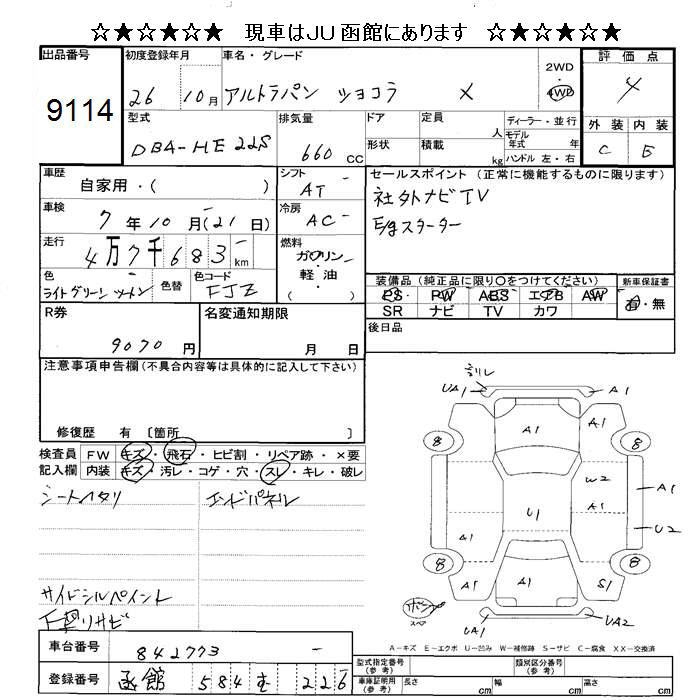 ☆★☆★☆★　現車はJU函館にあります　☆★☆★☆★
出品番号
9114
初度登録年月
26 10月
車名・グレード
アルトラパン ショコラ X
2WD
・
4WD
評価点
4
外装 内装
C B
型式
DBA-HE22S
排気量
660 CC
ドア
形状
定員 人
積載 kg
ディーラー・並行
モデル年式 年
ハンドル 左・右
車歴
自家用・( )
シフト
AT
車検
7年10月(21日)
冷房
AC
走行
4万7千683km
燃料
ガソリン・軽油
( )
色
ライトグリーンツートン
色替
色コード
FJZ
セールスポイント (正常に機能するものに限ります)
社外ナビTV
E/gスターター
装備品(純正品に限り○をつけてください)
PS PW ABS エアB AW
SR ナビ TV カワ
新車保証書
有・無
後日品
R券
9070円
名変通知期限
月 日
注意事項申告欄(不具合内容等は具体的に記入して下さい)
修復歴 有 〔箇所 〕
検査員記入欄
FW キズ・飛石・ヒビ割・リペア跡・×要
内装 キズ・汚レ・コゲ・穴・スレ・キレ・破レ
シートヘタリ
エンドパネル
サイドシルペイント
下廻リサビ
割レ
UA1 A1
A1 A1
8 8
W2
A1 A1
U1 U2
A1
8 8
A1 A1 S1
スペア
UA1 UA2
A-キズ E-エクボ U-凹み W-補修跡 S-サビ C-腐食 XX-交換済
車台番号
842773
登録番号
函館 584 む 226
型式指定番号(参考)
類別区分番号(参考)
車庫証明用(参考)
長さ cm 幅 cm 高さ cm